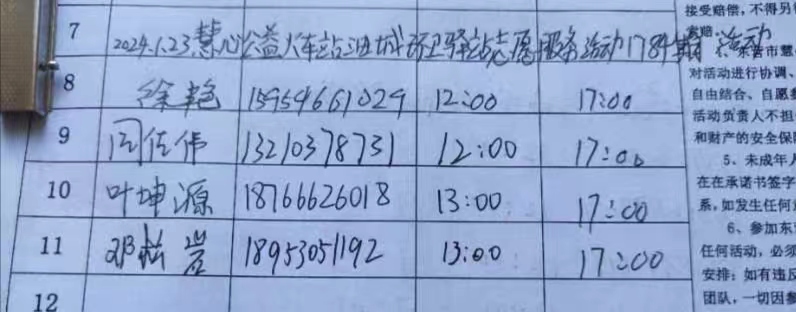 接受赔偿，不得另
7 2024.1.23慧心公益火车站油城环卫驿站志愿服务活动1784期 活动
东营市慧
对活动进行协调、
8 徐艳 15954661029 12:00 17:00
自由结合、自愿参
活动负责人不担
9 闫佐伟 13210378731 12:00 17:00
和财产的安全保
5、未成年人
10 叶坤源 18766626018 13:00 17:00
在在承诺书签字
系,如发生任何
6、参加东
11 邓松岩 18953051192 13:00 17:00
任何活动，必须
安排；如有违反
12
团队，一切因参